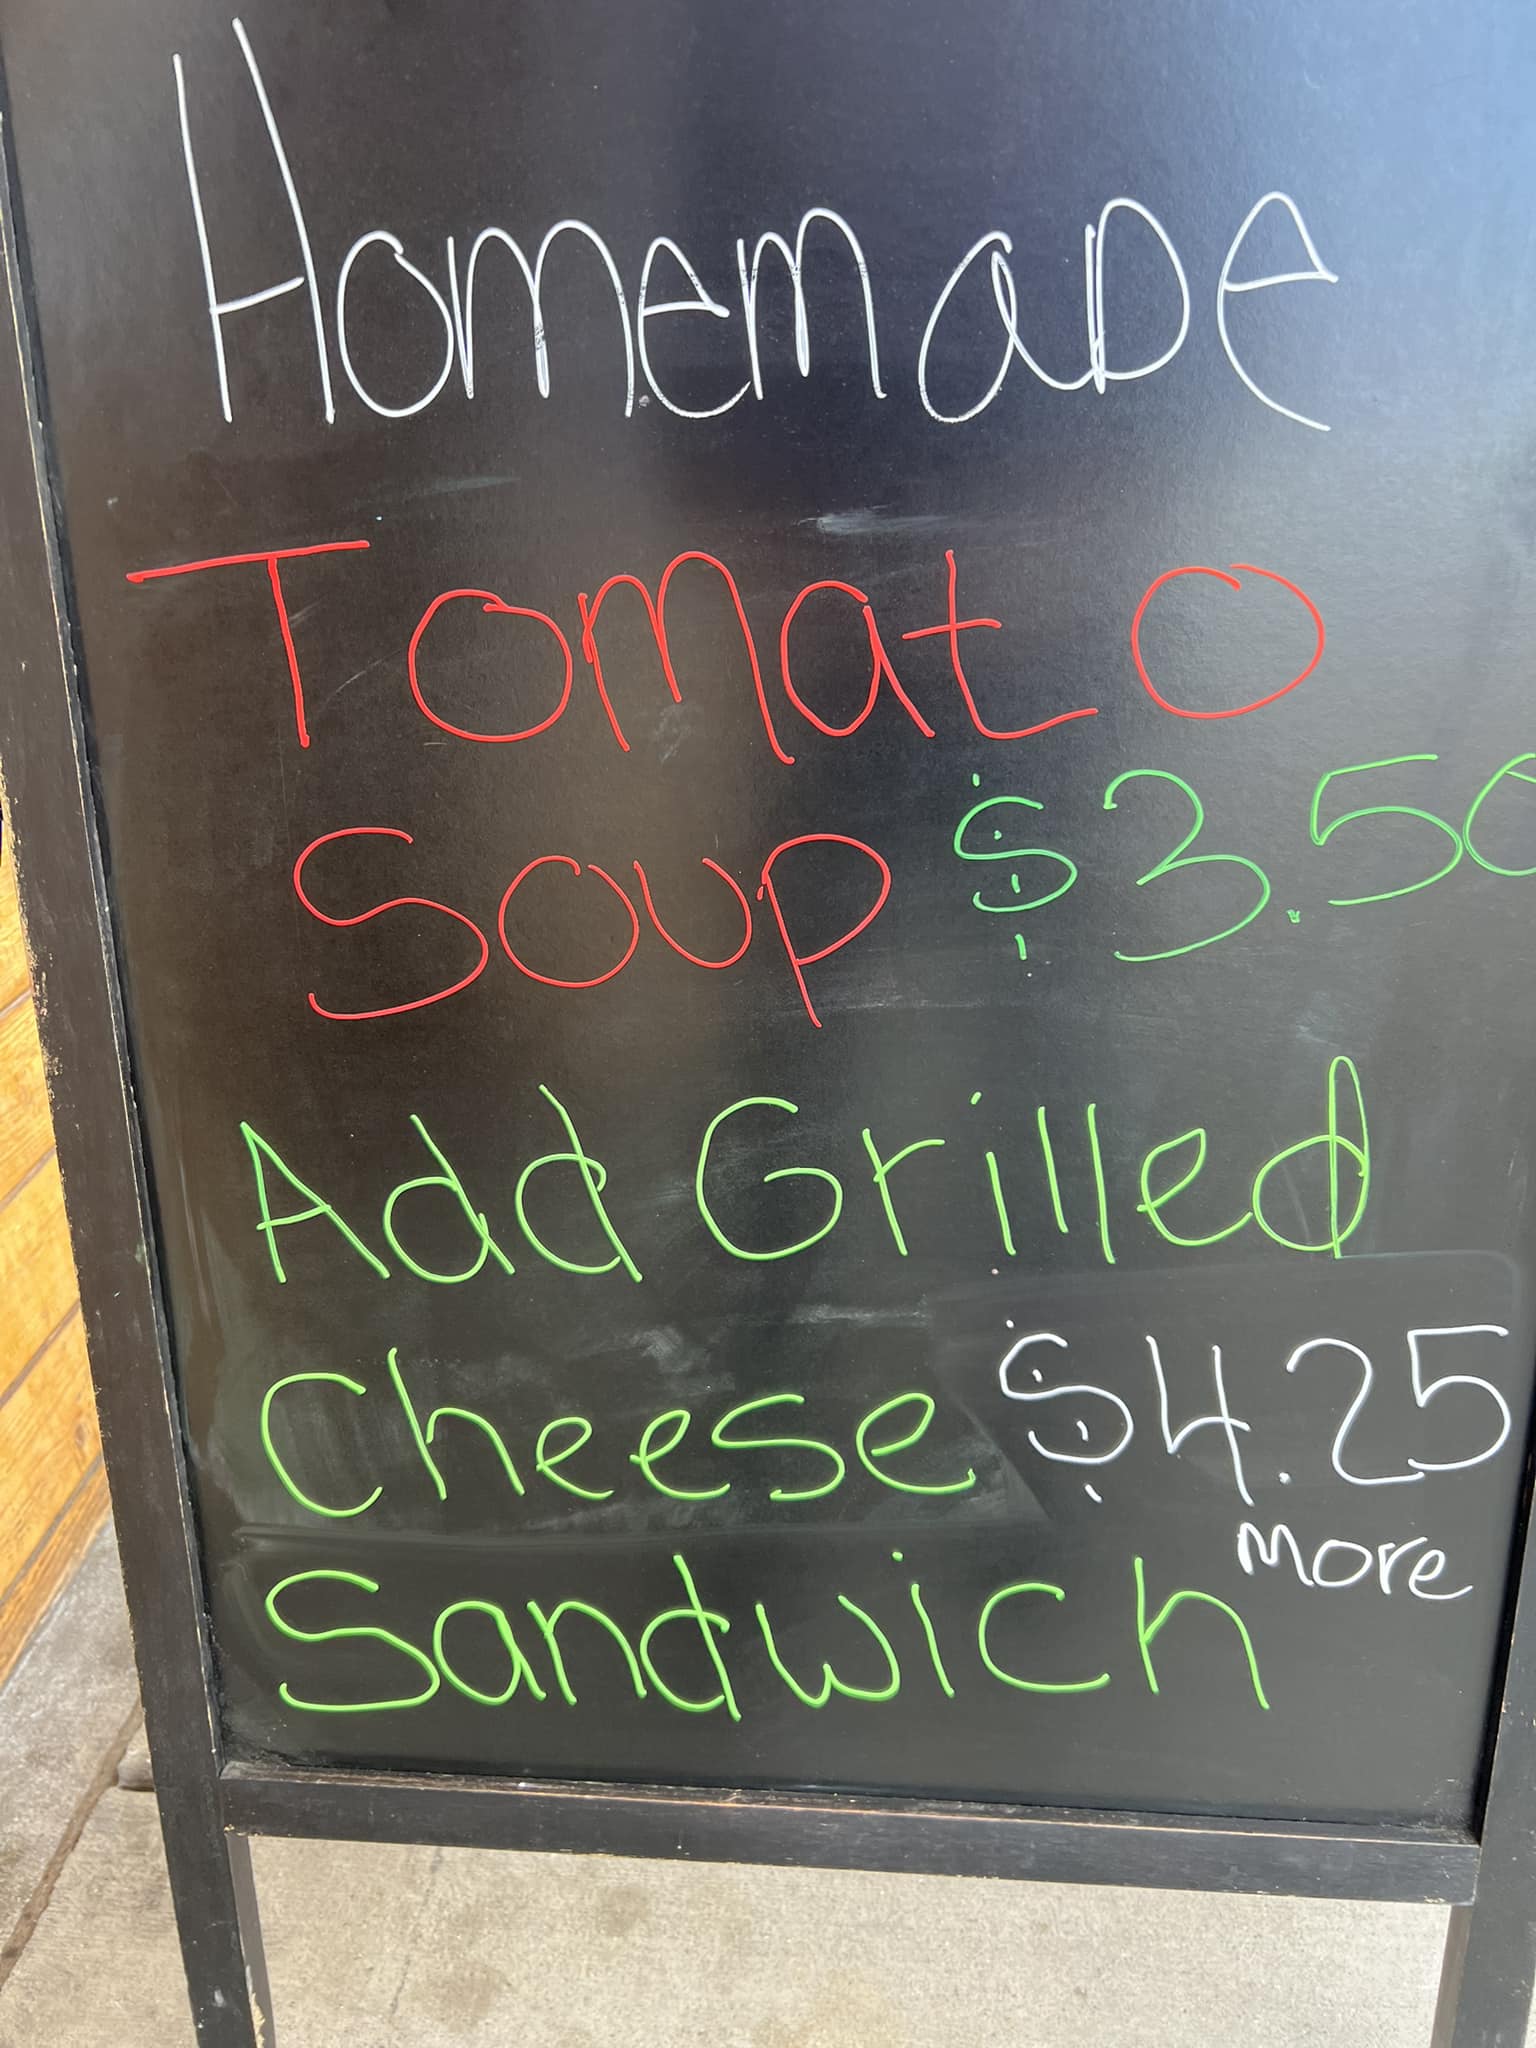 Homemade
Tomato
Soup $3.50
Add Grilled
Cheese $4.25
more
Sandwich